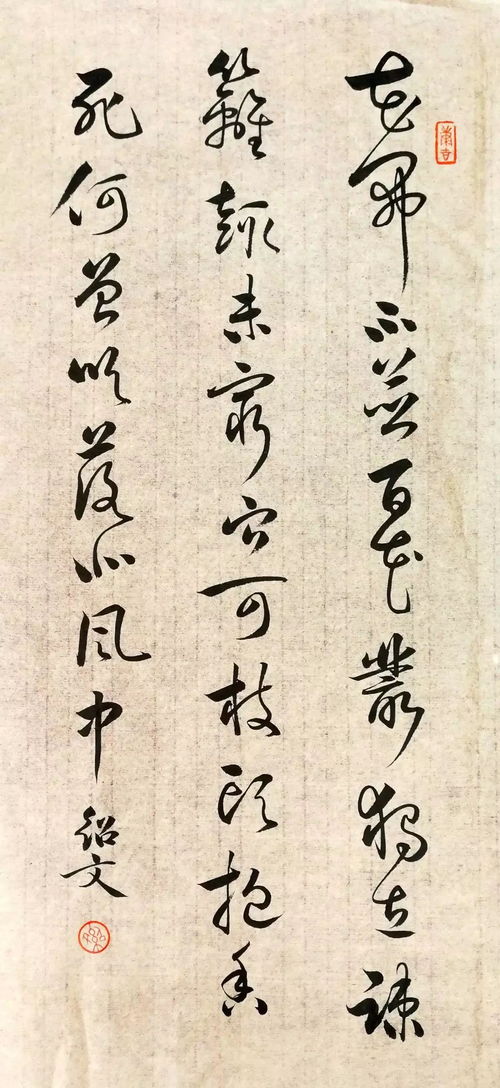 花開不並百花叢獨立疎
籬趣未窮寧可枝頭抱香
死何曾吹落北風中
紹文